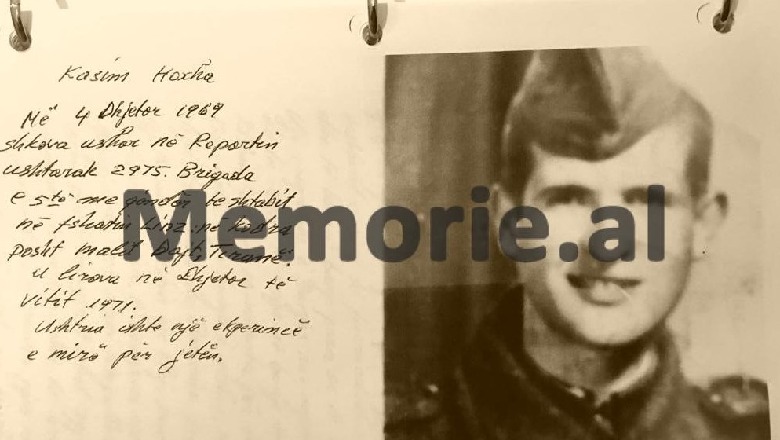 Kasim Hoxha
Në 4 Dhjetor 1969
shkova ushtar në Repartin
ushtarak 2975. Brigada
e 5të me qendër të shtabit
në fshatin Linz në kodra
posht malit Dajt Tiranë.
u lirova në Dhjetor të
vitit 1971.
Ushtria ishte një eksperiencë
e mirë për jetën.
Memorie.al